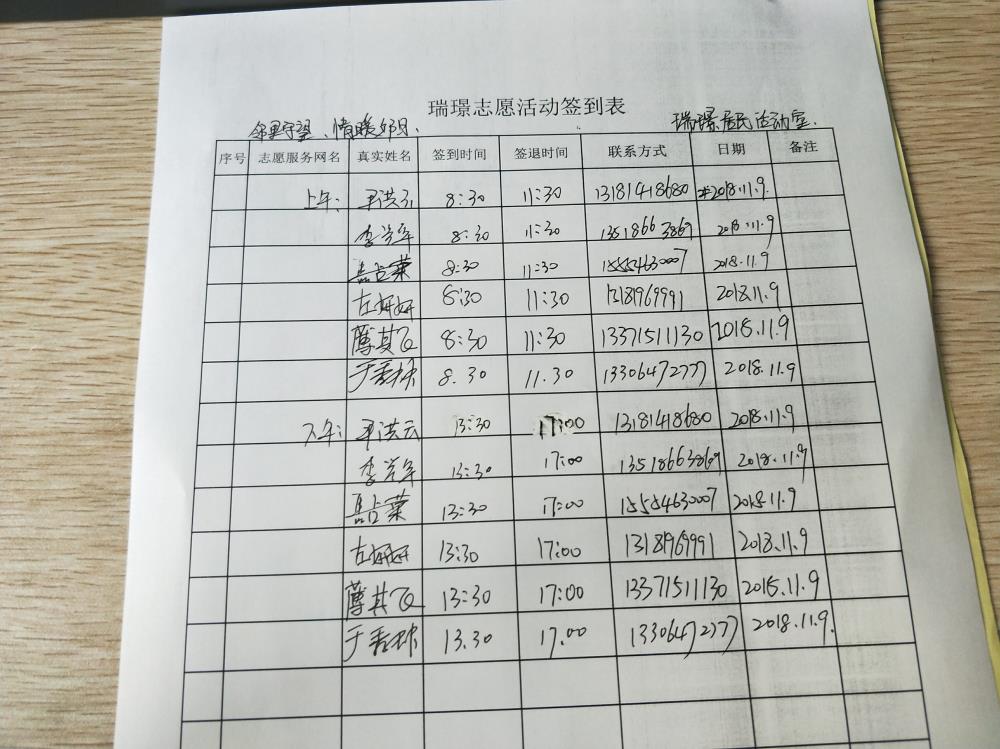 瑞璟志愿活动签到表
邻里守望、情暖夕阳. 瑞璟居民活动室
序号 志愿服务网名 真实姓名 签到时间 签退时间 联系方式 日期 备注
上午: 8:30 11:30 13181418680 2018.11.9.
李兰军 8:30 11:30 13518663869 2018.11.9
8:30 11:30 15554630007 2018.11.9
左妍妍 8:30 11:30 13181969991 2018.11.9
薄其飞 8:30 11:30 13371511130 2018.11.9
于秀稳 8.30 11.30 13306472777 2018.11.9
下午: 13:30 17:00 13181418680 2018.11.9
李兰军 13:30 17:00 13518663869 2018.11.9
13:30 17:00 15554630007 2018.11.9
左妍妍 13:30 17:00 13181969991 2018.11.9
薄其飞 13:30 17:00 13371511130 2018.11.9
于秀稳 13.30 17.00 13306472777 2018.11.9.